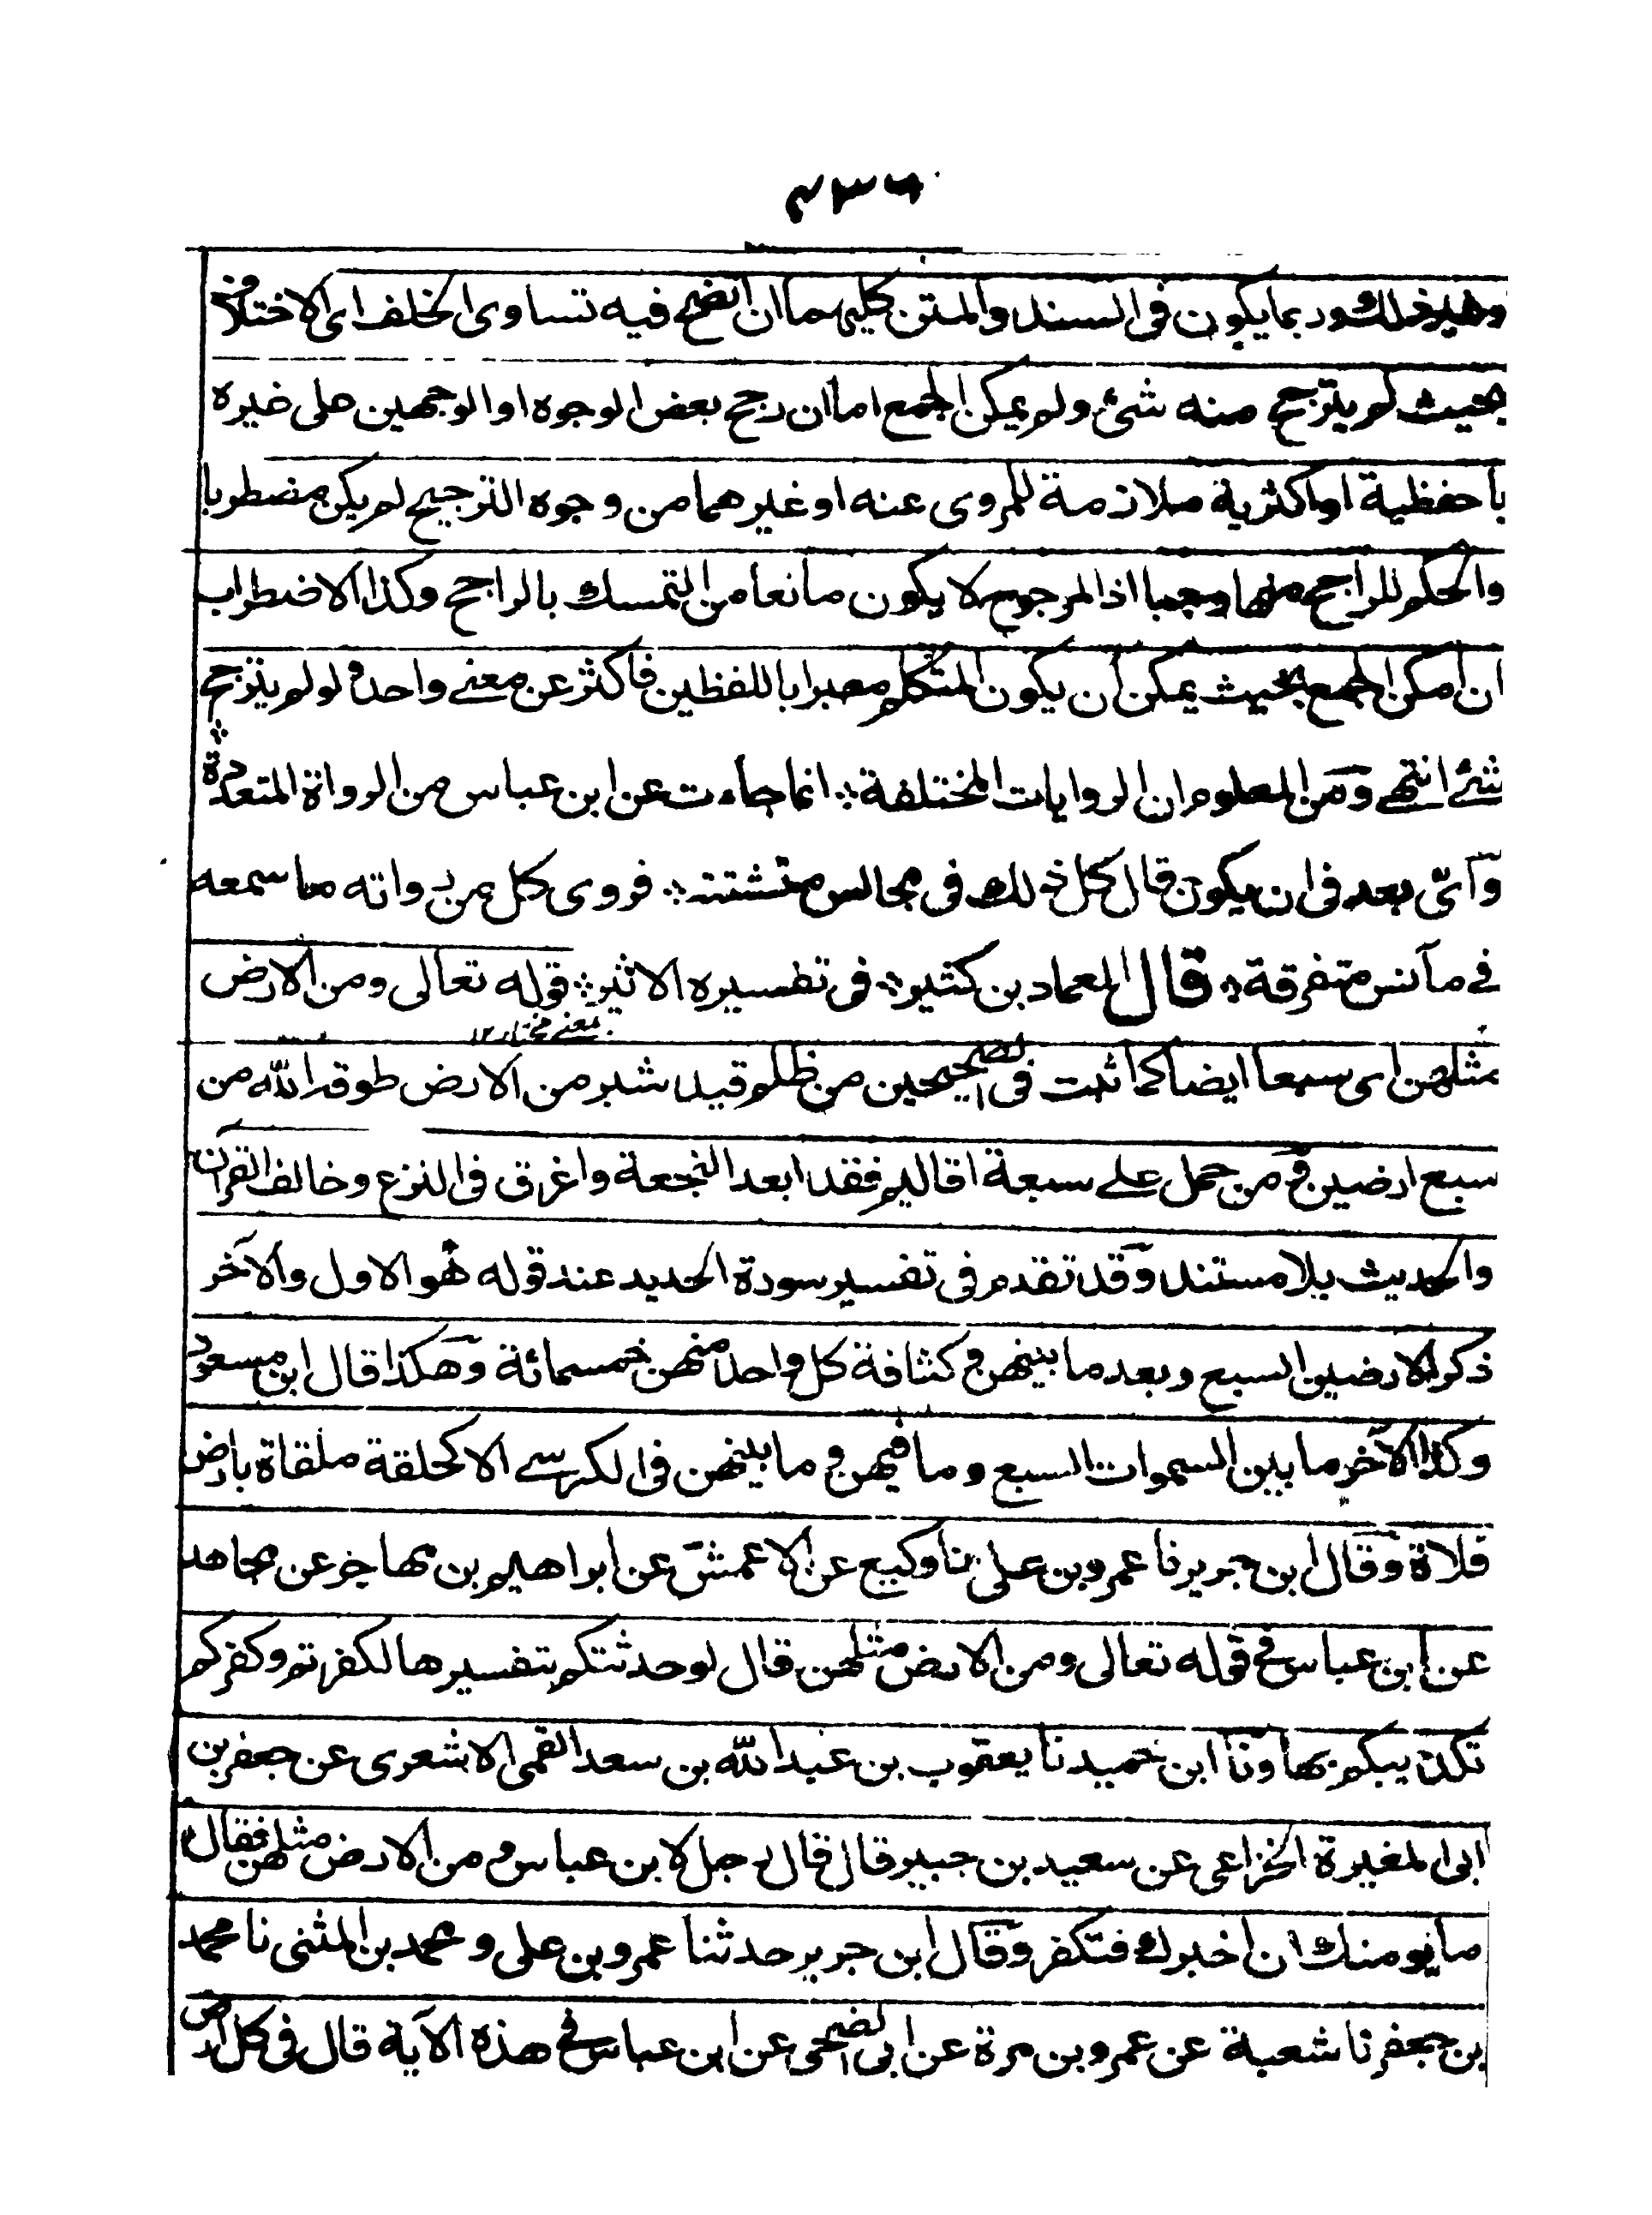 وغير ذلك وربما يكون فى السند والمتن كليهما ان اتضح فيه تساوى الخلف اى الاختلاف
بحيث لم يترجح منه شئ ولم يمكن الجمع اما ان رجح بعض الوجوه او الوجهين على غيره
باحفظية او اكثرية ملازمة للمروى عنه او غيرهما من وجوه الترجيح لم يكن مضطربا
والحكم للراجح منها وجبا اذ المرجوح لا يكون مانعا من التمسك بالراجح وكذا الاضطراب
ان امكن الجمع بحيث يمكن ان يكون المتكلم معبرا باللفظين فاكثر عن معنے واحد ولو لم يترجح
شئے انتهے ومن المعلوم ان الروايات المختلفة انما جاءت عن ابن عباس من الرواة المتعددة
وأىّ بعد فى ان يكون قال كل ذلك فى مجالس متشتتة فروى كل من رواته ما سمعه
فے مآنس متفرقة قال العماد بن كثير فى تفسيره الاثير قوله تعالى ومن الارض
بمعنے مختار ١٢
مثلهن اى سبعا ايضا كما ثبت فى الصحيحين من ظلم قيد شبر من الارض طوقه الله من
سبع ارضين ومن حمل علے سبعة اقاليم فقد ابعد النجعة واغرق فى النزع وخالف القرآن
والحديث بلا مستند وقد تقدم فى تفسير سورة الحديد عند قوله هو الاول والآخر
ذكر الارضين السبع وبعد ما بينهن وكثافة كل واحد منهن خمسمائة وهكذا قال ابن مسعود
وكذا الآخر ما بين السموات السبع وما فيهن وما بينهن فى الكرسے الا كحلقة ملقاة بارض
فلاة وقال ابن جرير نا عمرو بن على نا وكيع عن الاعمش عن ابراهيم بن مهاجر عن مجاهد
عن ابن عباس فے قوله تعالى ومن الارض مثلهن قال لو حدثتكم بتفسيرها لكفرتم وكفركم
تكذيبكم بها ونا ابن حميد نا يعقوب بن عبد الله بن سعد القمى الاشعرى عن جعفر بن
ابى المغيرة الخزاعى عن سعيد بن جبير قال قال رجل لابن عباس ومن الارض مثلهن فقال
ما يؤمنك ان اخبرك فتكفر وقال ابن جرير حدثنا عمرو بن على ومحمد بن المثنى نا محمد
بن جعفر نا شعبة عن عمرو بن مرة عن ابى الضحى عن ابن عباس فے هذه الآية قال فى كل ارض